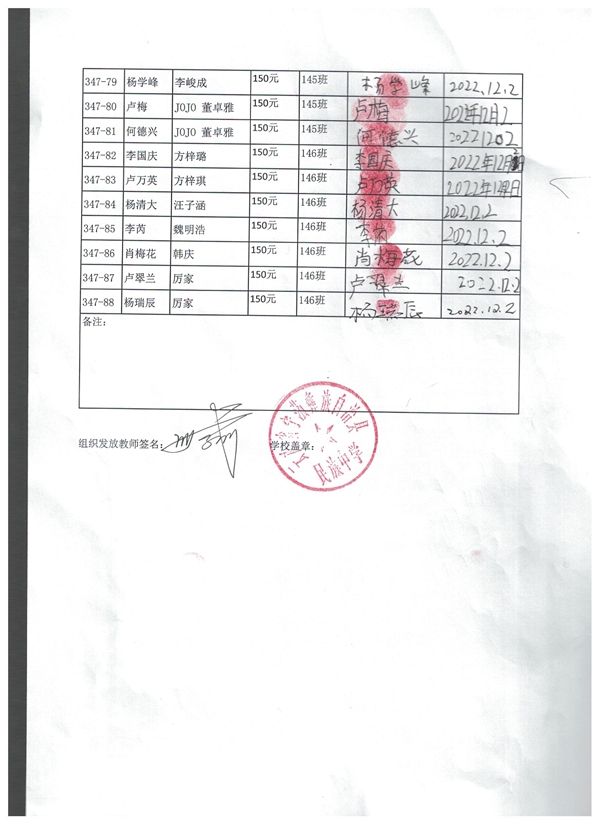 347-79 杨学峰 李峻成 150元 145班 杨学峰 2022.12.2
347-80 卢梅 JOJO 董卓雅 150元 145班 卢梅 2022年12月2
347-81 何德兴 JOJO 董卓雅 150元 145班 何德兴 2022 12 2
347-82 李国庆 方梓璐 150元 146班 李国庆 2022年12月2日
347-83 卢万英 方梓琪 150元 146班 卢万英 2022年12月2日
347-84 杨清大 汪子涵 150元 146班 杨清大 2022.12.2
347-85 李芮 魏明浩 150元 146班 李芮 2022.12.2
347-86 肖梅花 韩庆 150元 146班 肖梅花 2022.12.2
347-87 卢翠兰 厉家 150元 146班 卢翠兰 2022.12.2
347-88 杨瑞辰 厉家 150元 146班 杨瑞辰 2022.12.2
备注：
组织发放教师签名：
学校盖章：
族彝族自治县
民族中学